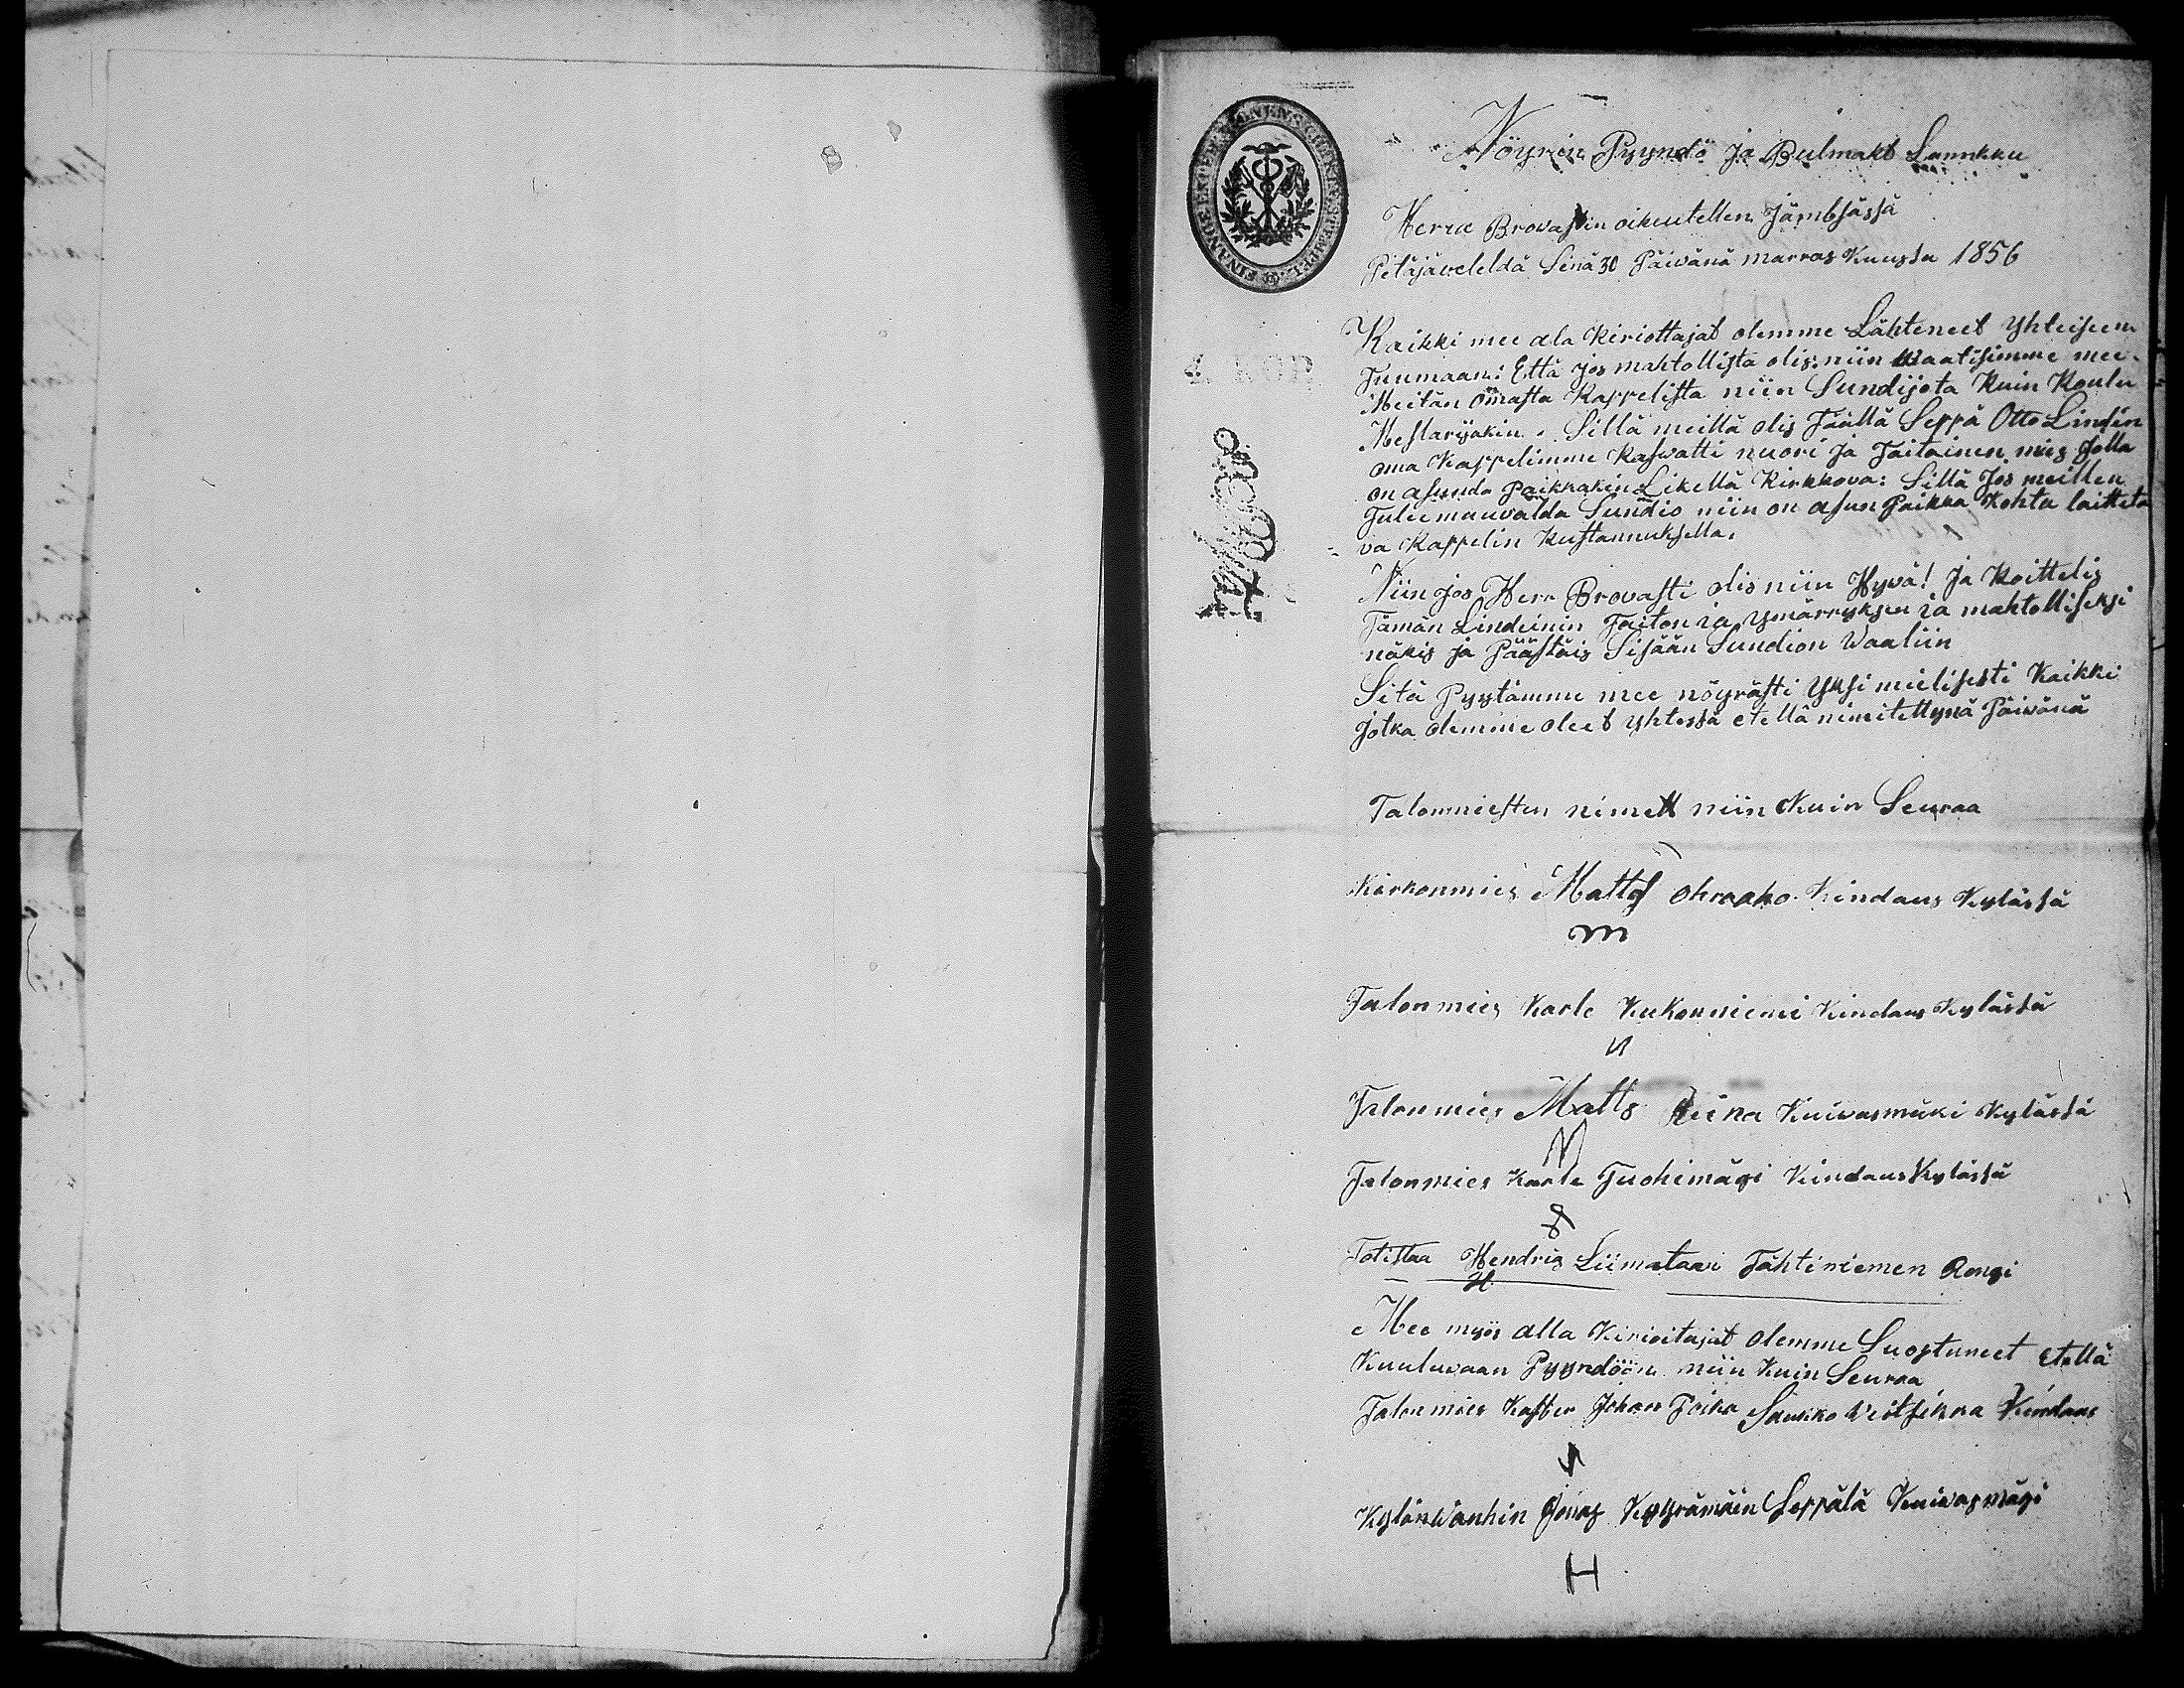 Nöyrin Pyyndö ja Bulmakt Lunnkku
Herra Brovastin oikeutellen Jämbsässä
Pitäjäveleldä Sinä 30 Päivänä marras Kuussa 1856
4 KOP.
Kaikki mee ala Kiriottajat olemme Lähteneet Yhteiseen
Tuumaan: Että jos mahtollista olis: niin Waatisimme mee
Meitän omasta Kappelista niin Sundijota Kuin Koulu
Mestarijakin. Sillä meillä olis Täällä Seppä Otto Lindin
oma Kappelimme Kasvatti nuori Ja Taitainen mies Jolla
on asunda Paikkakin Likellä Kirkkova: Sillä Jos meillen
Tulee muuvalda Sundio niin on asun Paikka Kohta laitteta
va Kappelin Kustannuksella.
Niin jos Herr Brovasti olis niin Hyvä! Ja Koittelis
Tämän Lindeinin Taiton ia Ymärryksen ia mahtolliseksi
näkis ja Päästäis Sisään Sundion Waaliin
Sitä Pyytämme mee nöyrästi Yksi mielisesti Kaikki
Jotka olemme oleet Yhtessä etellä nimitettynä Päivänä
Talonmiesten nimett niin Kuin Seuraa
Kirkonmies Matts Ohraaho Kindaus Kylässä
m
Talonmies Karle Kukonniemi Kindaus Kylässä
Talonmies Matts Reina Kuivasmäki Kylässä
M
Talonmies Karle Tuohimägi Kindaus Kylässä
Totistaa Hendris Liimatain Tähtiniemen Rengi
H
Mee myös alla Kirioitajat olemme Suostuneet etellä
Kuuluvaan Pyyndöön niin Kuin Seuraa
Talonmies Kasber Johan Poika Saukko Kindaus
Kylän Wanhin Jonas Seppälä Kuivasmägi
H